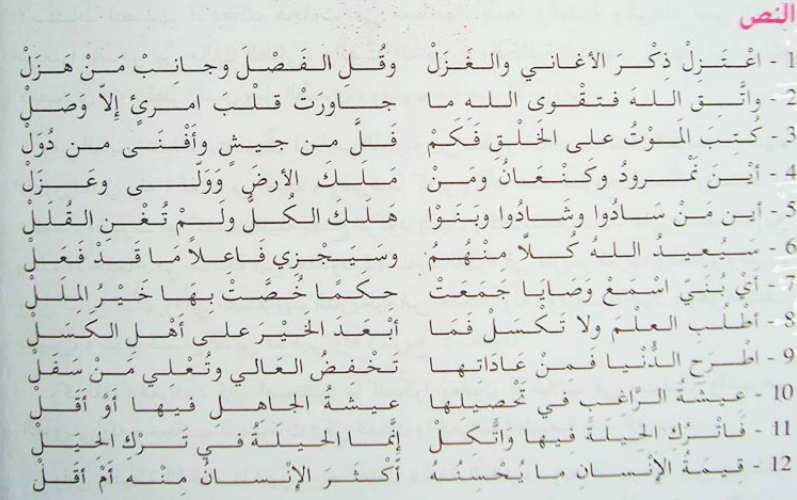 النص
1 - اعْتَزِلْ ذِكْرَ الأغاني والغَزَلْ وقُلِ الفَصْلَ وجانبْ مَنْ هَزَلْ
2 - واتَّقِ اللهَ فتقْوى الله ما جاورتْ قلْبَ امرئٍ إلاّ وَصَلْ
3 - كُتِبَ المَوْتُ على الخَلْقِ فَكَمْ فلَّ من جيشٍ وأفْنَى من دُوَلْ
4 - أيْنَ نمْرودُ وكَنْعَانُ ومَنْ مَلَكَ الأرضَ وَوَلَّى وعَزَلْ
5 - أين مَنْ سَادُوا وشَادُوا وبَنَوْا هَلَكَ الكُلُّ ولَمْ تُغْنِ القُلَلْ
6 - سَيُعيدُ اللهُ كَلاًّ منْهُمُ وسَيَجْزي فَاعِلاً مَا قَدْ فَعَلْ
7 - أيْ بُنَي اسْمعْ وَصَايا جمَعَتْ حِكمًا خُصَّتْ بِهَا خَيْرُ المِلَلْ
8 - أطْلُب العلْمَ ولا تَكْسلْ فَمَا أبْعَدَ الخَيْرَ على أهْلِ الكَسَلْ
9 - اطْرَحِ الدُّنْيا فَمنْ عَادَاتها تَخْفضُ العَالي وتُعْلي مَنْ سفَلْ
10 - عيشةُ الرَّاغب في تَحْصيلها عيشةُ الجاهل فيهَا أوْ أقَلْ
11 - فَاتْرُك الحيلَةَ فيهَا واتَّكلْ إنَّمَا الحيلَةُ في تَرْك الحيَلْ
12 - قيمَةُ الإنْسان ما يُحْسنُه أكْثَرَ الإنْسانُ منْه أمْ أقَلْ